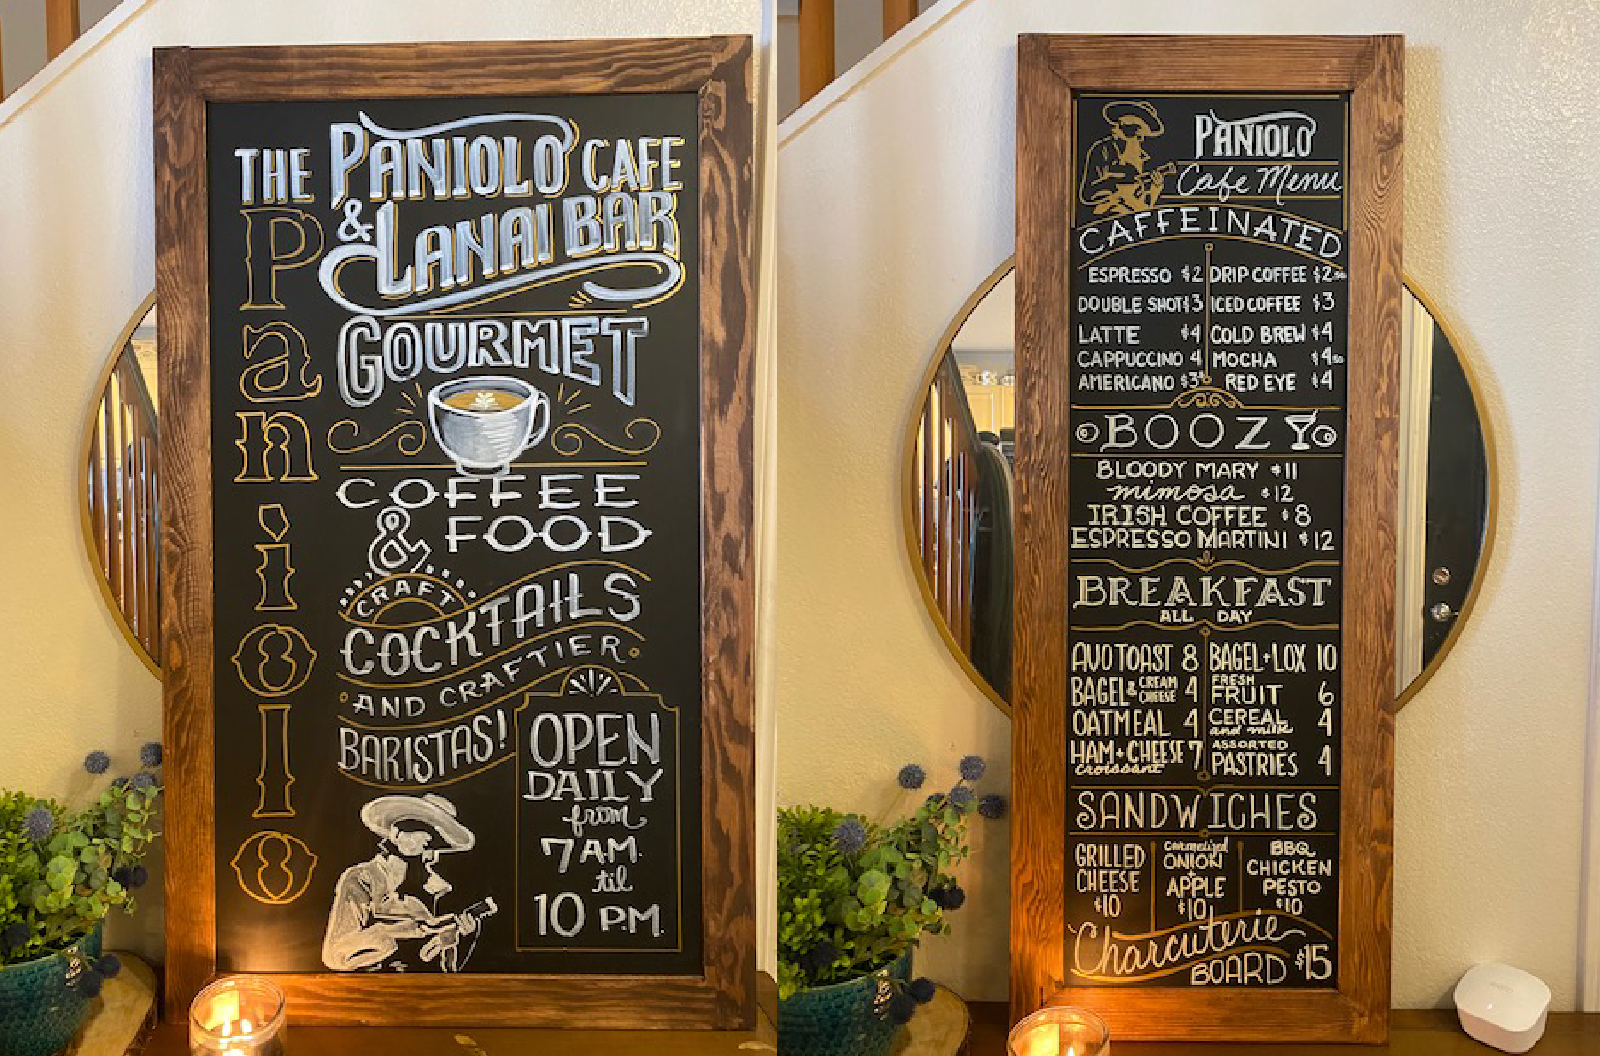 THE PANIOLO CAFE
& LANAI BAR
Paniolo
GOURMET
COFFEE
& FOOD
CRAFT
COCKTAILS
AND CRAFTIER
BARISTAS!
OPEN
DAILY
from
7 AM.
til
10 P.M.
PANIOLO
Cafe Menu
CAFFEINATED
ESPRESSO $2 DRIP COFFEE $2.50
DOUBLE SHOT $3 ICED COFFEE $3
LATTE $4 COLD BREW $4
CAPPUCCINO 4 MOCHA $4.50
AMERICANO $3.50 RED EYE $4
BOOZY
BLOODY MARY $11
mimosa $12
IRISH COFFEE $8
ESPRESSO MARTINI $12
BREAKFAST
ALL DAY
AVO TOAST 8 BAGEL + LOX 10
BAGEL & CREAM CHEESE 4 FRESH FRUIT 6
OATMEAL 4 CEREAL and milk 4
HAM + CHEESE croissant 7 ASSORTED PASTRIES 4
SANDWICHES
GRILLED CHEESE $10
caramelized ONION + APPLE $10
BBQ CHICKEN PESTO $10
Charcuterie
BOARD $15